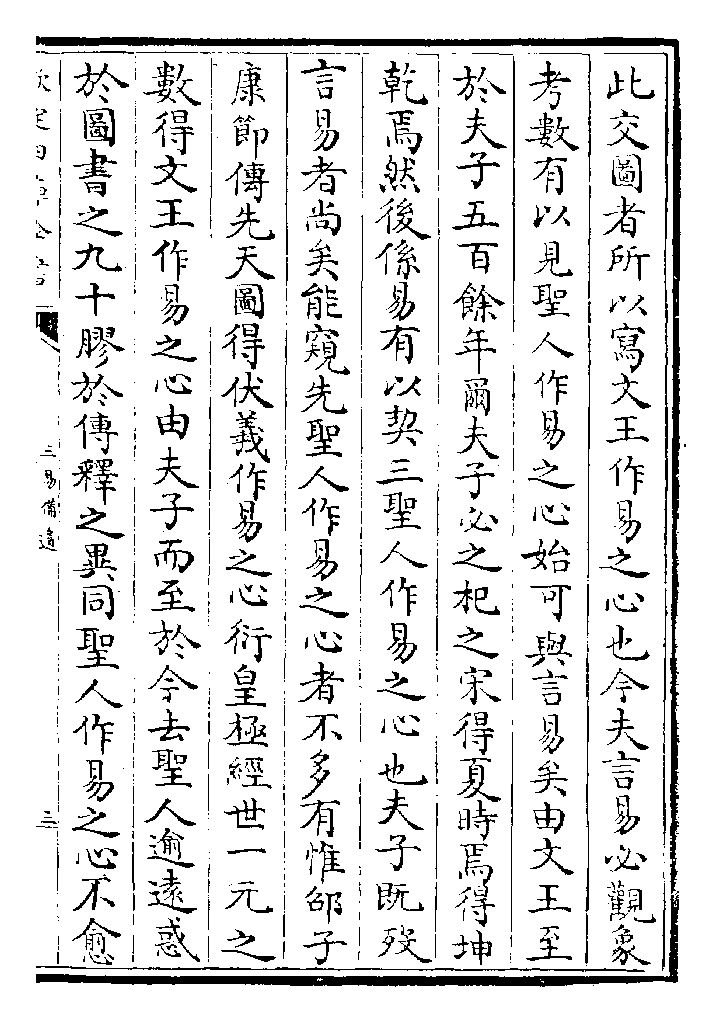 此交圖者所以寫文王作易之心也今夫言易必觀象
考數有以見聖人作易之心始可與言易矣由文王至
於夫子五百餘年爾夫子必之杞之宋得夏時焉得坤
乾焉然後係易有以契三聖人作易之心也夫子既歿
言易者尚矣能窺先聖人作易之心者不多有惟邵子
康節傳先天圖得伏羲作易之心衍皇極經世一元之
數得文王作易之心由夫子而至於今去聖人逾遠惑
於圖書之九十膠於傳釋之異同聖人作易之心不愈
欽定四庫全書
三易備遺
三